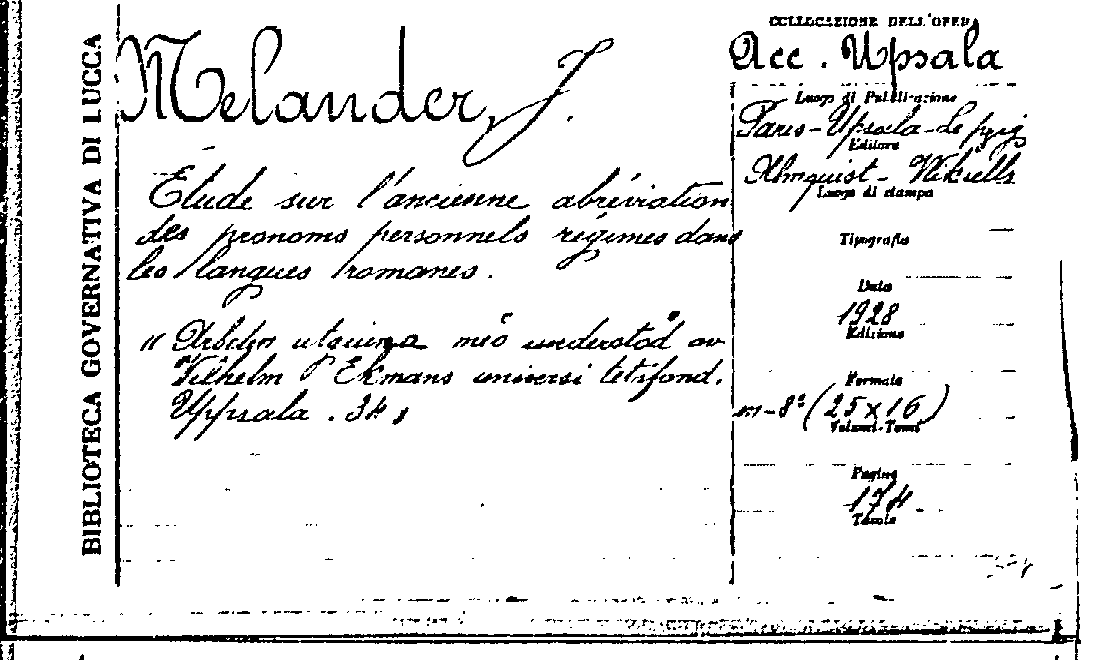 BIBLIOTECA GOVERNATIVA DI LUCCA
Melander, J.
Etude sur l'ancienne abréviation
des pronoms personnels régimes dans
les langues romanes.
" Arbeten utgivna med understöd av
Vilhelm Ekmans universitetsfond.
Uppsala . 34 "
COLLOCAZIONE DELL'OPERA
Acc. Upsala
Luogo di Pubblicazione
Paris-Upsala-Leipzig
Editore
Almquist - Wiksells
Luogo di stampa
Tipografia
Data
1928
Edizione
Formato
in-8° (25x16)
Volumi-Tomi
Pagine
174
Tavole